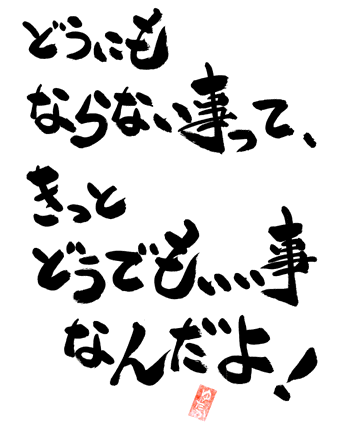 どうにも
ならない事って、
きっと
どうでもいい事
なんだよ!